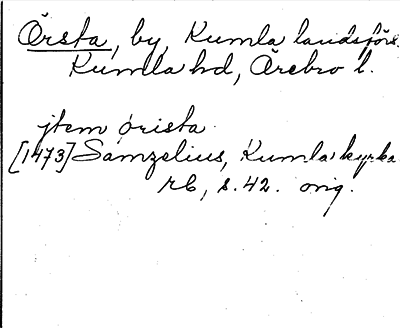 Örsta, by, Kumla landsförs.
Kumla hd, Örebro l.
jtem ørista
[1473] Samzelius, Kumla kyrka
rb, s. 42. orig.